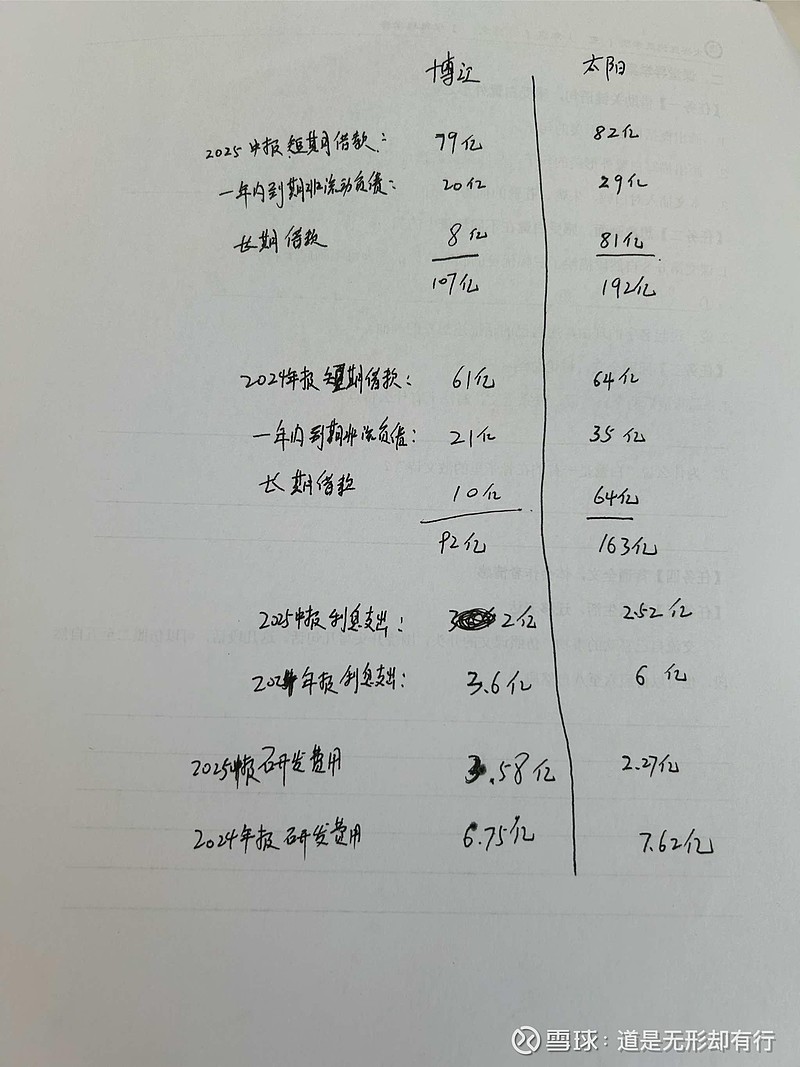 博汇 太阳
2025中报短期借款： 79亿 82亿
一年内到期非流动负债： 20亿 29亿
长期借款 8亿 81亿
107亿 192亿
2024年报短期借款： 61亿 64亿
一年内到期非流负债： 21亿 35亿
长期借款 10亿 64亿
92亿 163亿
2025中报利息支出： 2亿 2.52亿
2024年报利息支出： 3.6亿 6亿
2025中报研发费用 3.58亿 2.27亿
2024年报研发费用 6.75亿 7.62亿
雪球：道是无形却有行